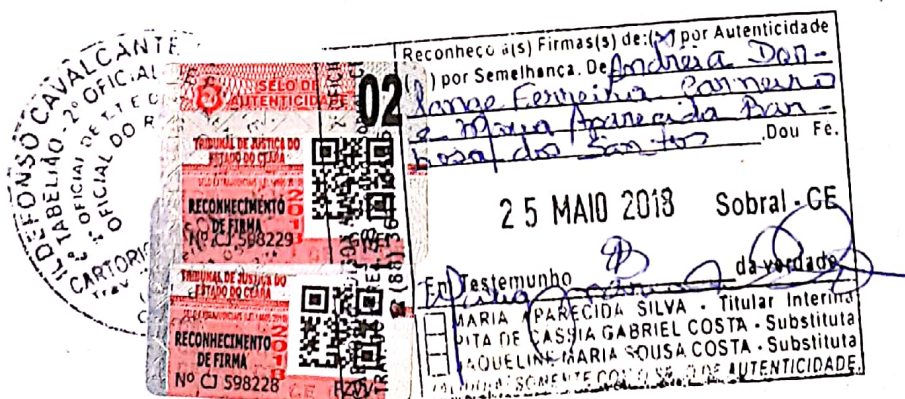 ILDEFONSO CAVALCANTE
TABELIÃO - 2º OFICIAL
OFICIAL DE T.T E
OFICIAL DO
CARTORIO
SELO DE
AUTENTICIDADE
02
TRIBUNAL DE JUSTIÇA DO
ESTADO DO CEARÁ
2018
RECONHECIMENTO
DE FIRMA
Nº CJ 598229
TRIBUNAL DE JUSTIÇA DO
ESTADO DO CEARÁ
2018
RECONHECIMENTO
DE FIRMA
Nº CJ 598228
(88)
Reconheço a(s) Firmas(s) de: ( ) por Autenticidade
( ) por Semelhança. De Andréia Dor-
lange Ferreira Carneiro
e Maria Aparecida Bar-
bosa dos Santos .Dou Fé.
25 MAIO 2018 Sobral - CE
Em Testemunho da verdade
MARIA APARECIDA SILVA - Titular Interina
RITA DE CASSIA GABRIEL COSTA - Substituta
JAQUELINE MARIA SOUSA COSTA - Substituta
SOMENTE COM O DE AUTENTICIDADE.